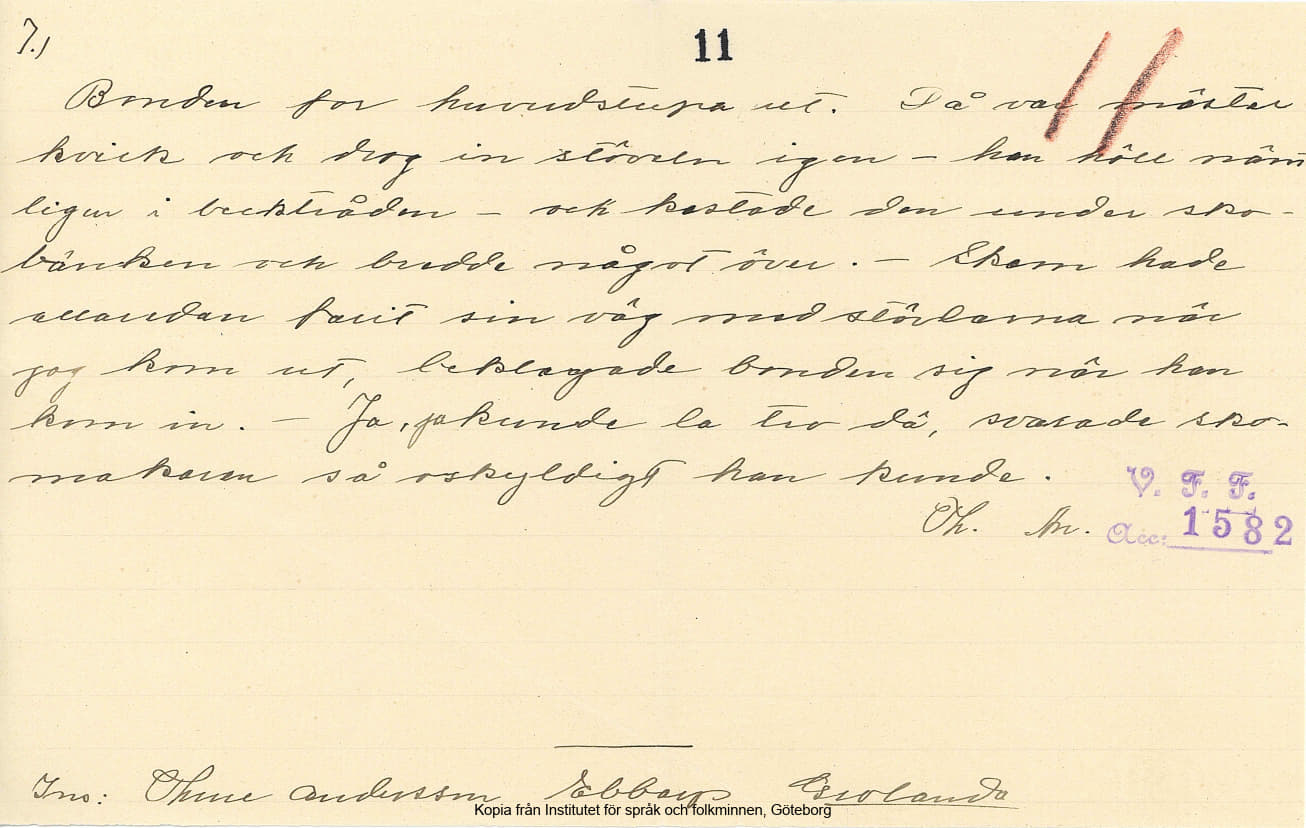 7.)
11
11
Bonden for huvudstupa ut. Då var mäster
kvick och drog in stöveln igen – han höll näm
ligen i becktråden – och kastade den under sko-
bänken och bredde något över. – Skam hade
allaredan farit sin väg med stövlarna när
jag kom ut, beklagade bonden sig när han
kom in. – Ja, ja kunde la tro dä, svarade sko-
makaren så oskyldigt han kunde.
V. F. F.
Th. An.
Acc: 1582
Ins: Thure Andersson Ebbarp Grolanda
Kopia från Institutet för språk och folkminnen, Göteborg